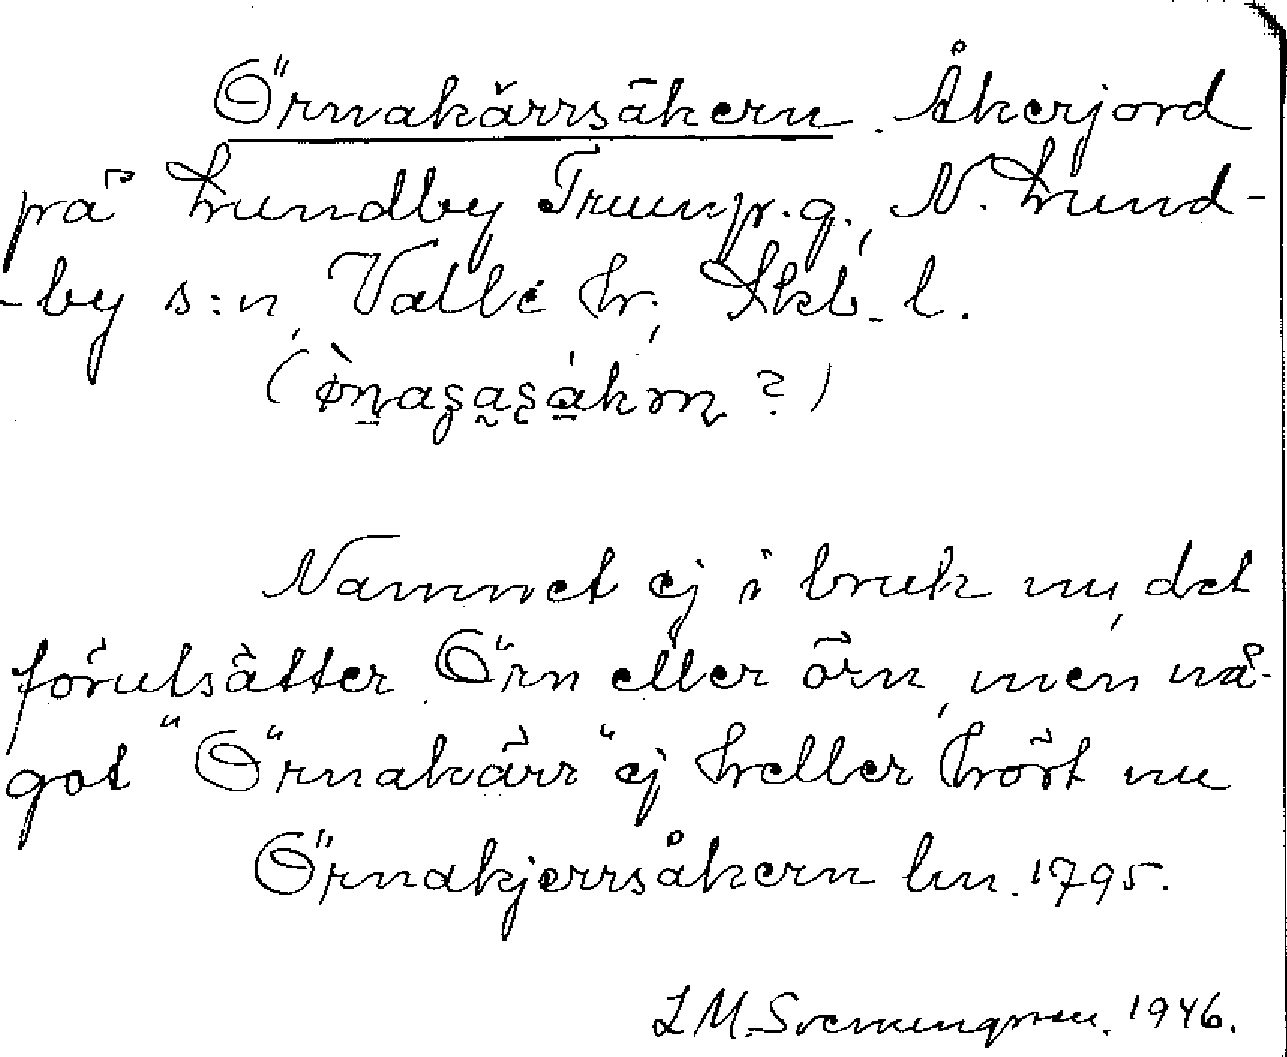 Örnakärrsåkern. Åkerjord
på Lundby Trump.g., N. Lund-
-by s:n, Valle hr, Skb. l.
Namnet ej i bruk nu, det
förutsätter Örn eller örn, men nå-
got "Örnakärr" ej heller hört nu
Örnakjerrsåkern lm. 1795.
L M. Svenungsson. 1946.